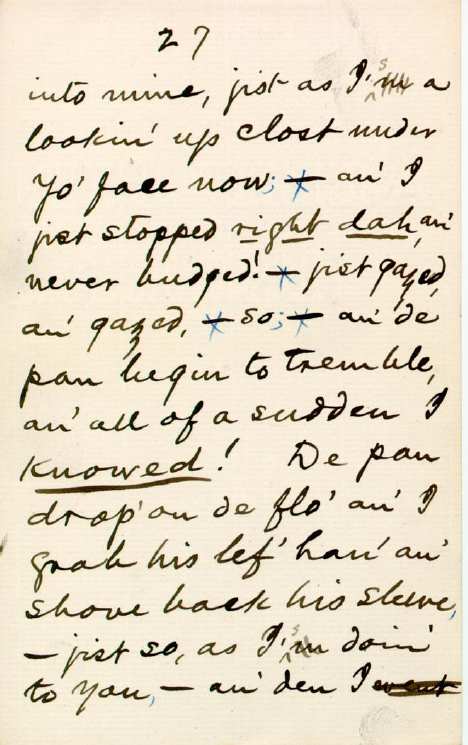 27
into mine, jist as I's a
lookin' up clost under
yo' face now; — an' I
jist stopped right dah, an'
never budged! — jist gazed,
an' gazed, — so; — an' de
pan begin to tremble,
an' all of a sudden I
knowed! De pan
drop' on de flo' an' I
grab his lef' han' an'
shove back his sleeve,
— jist so, as I's doin'
to you, — an' den I went